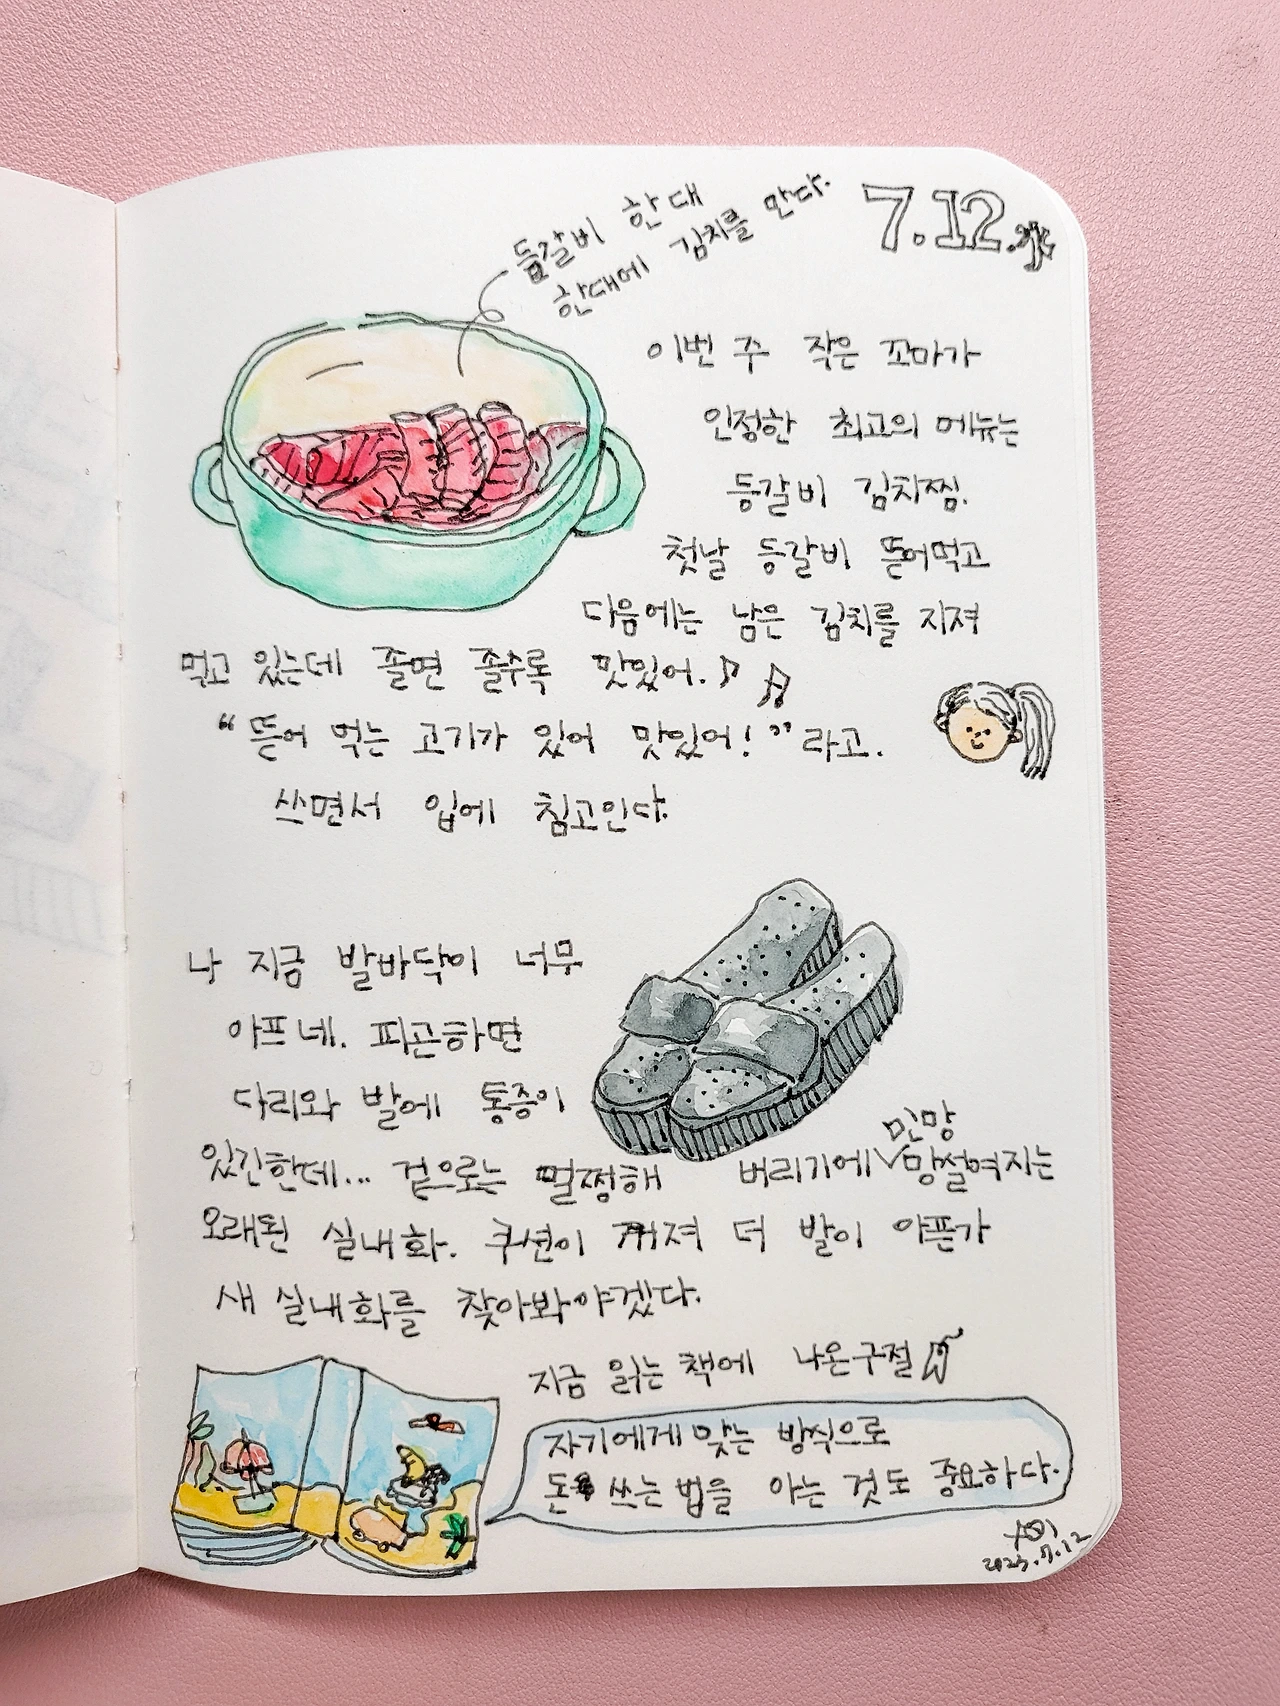 7.12.水
등갈비 한 대
한대에 김치를 만다.
이번 주 작은 꼬마가
인정한 최고의 메뉴는
등갈비 김치찜.
첫날 등갈비 뜯어먹고
다음에는 남은 김치를 지져
먹고 있는데 졸면 졸수록 맛있어.
“뜯어 먹는 고기가 있어 맛있어!” 라고.
쓰면서 입에 침고인다.
나 지금 발바닥이 너무
아프네. 피곤하면
다리와 발에 통증이
있긴한데... 겉으로는 멀쩡해 버리기에 민망 망설여지는
오래된 실내화. 쿠션이 꺼져 더 발이 아픈가
새 실내화를 찾아봐야겠다.
지금 읽는 책에 나온구절
자기에게 맞는 방식으로
돈 쓰는 법을 아는 것도 중요하다.
2023.7.12